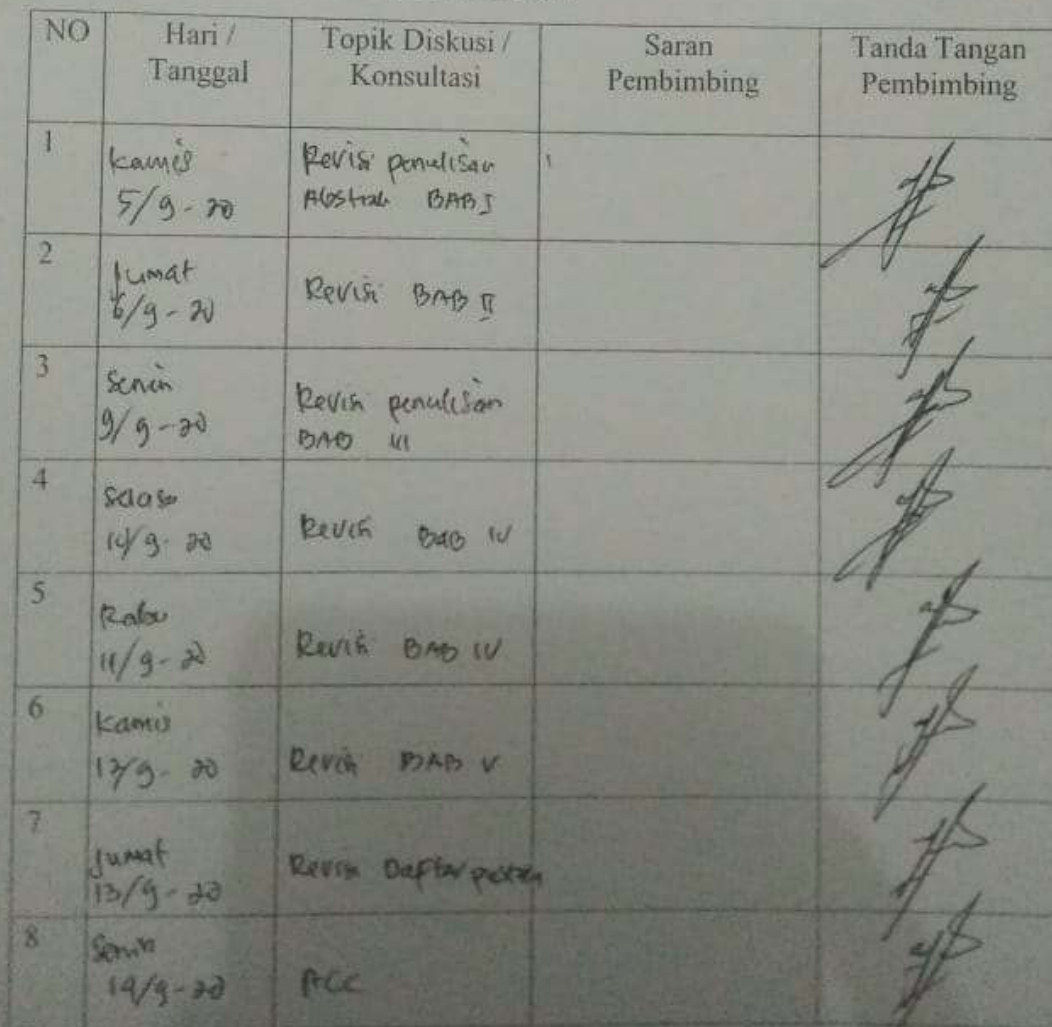 NO
Hari /
Tanggal
Topik Diskusi /
Konsultasi
Saran
Pembimbing
Tanda Tangan
Pembimbing
1
Kamis
5/9-20
Revisi penulisan
Abstrak BAB I
2
Jumat
6/9-20
Revisi BAB II
3
Senin
9/9-20
Revisi penulisan
BAB III
4
Selasa
10/9-20
Revisi BAB IV
5
Rabu
11/9-20
Revisi BAB IV
6
Kamis
12/9-20
Revisi BAB V
7
Jumat
13/9-20
Revisi Daftar pustaka
8
Senin
/9-20
ACC